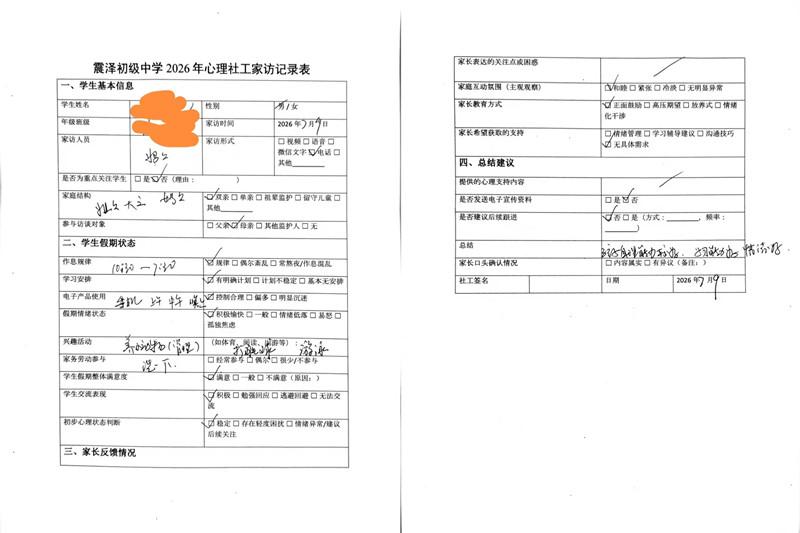 震泽初级中学 2026 年心理社工家访记录表
一、学生基本信息
学生姓名 性别 男 / 女
年级班级 家访时间 2026 年 7 月 9 日
家访人员 家访形式 □ 视频 □ 语音 □
微信文字 □ 电话 □
其他
是否为重点关注学生 □ 是 □ 否（理由： ）
家庭结构 □ 双亲 □ 单亲 □ 祖辈监护 □ 留守儿童 □
其他
参与访谈对象 □ 父亲 □ 母亲 □ 其他监护人 □ 无
二、学生假期状态
作息规律 □ 规律 □ 偶尔紊乱 □ 常熬夜/作息混乱
学习安排 □ 有明确计划 □ 计划不稳定 □ 基本无安排
电子产品使用 手机 □ 控制合理 □ 偏多 □ 明显沉迷
假期情绪状态 □ 积极愉快 □ 一般 □ 情绪低落 □ 易怒 □
孤独焦虑
兴趣活动 （如体育、阅读、游游等）： 游泳
家务劳动参与 □ 经常参与 □ 偶尔 □ 很少/不参与
学生假期整体满意度 □ 满意 □ 一般 □ 不满意（原因：）
学生交流表现 □ 积极 □ 勉强回应 □ 逃避回避 □ 无法交
流
初步心理状态判断 □ 稳定 □ 存在轻度困扰 □ 情绪异常/建议
后续关注
三、家长反馈情况
家长表达的关注点或困惑
家庭互动氛围（主观观察） □ 和睦 □ 紧张 □ 冷淡 □ 无明显异常
家长教育方式 □ 正面鼓励 □ 高压期望 □ 放养式 □ 情绪
化干涉
家长希望获取的支持 □ 情绪管理 □ 学习辅导建议 □ 沟通技巧
□ 无具体需求
四、总结建议
提供的心理支持内容
是否发送电子宣传资料 □ 是 □ 否
是否建议后续跟进 □ 否 □ 是（方式： ，频率：
）
总结
家长口头确认情况 □ 内容属实 □ 有异议（备注：）
社工签名 日期 2026 年 7 月 9 日